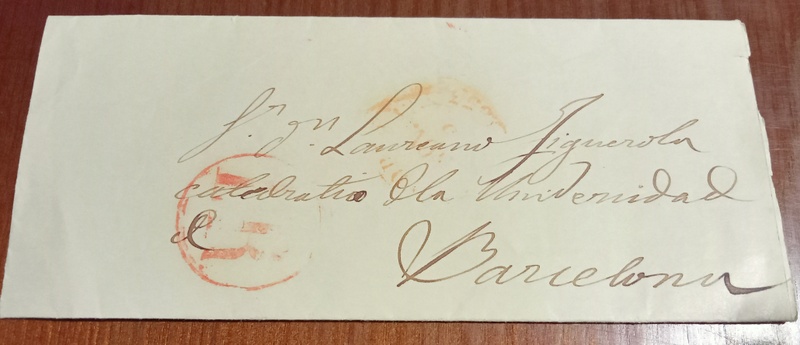 Sr. Dn. Laureano Figuerola
catedratico de la Universidad
de
Barcelona